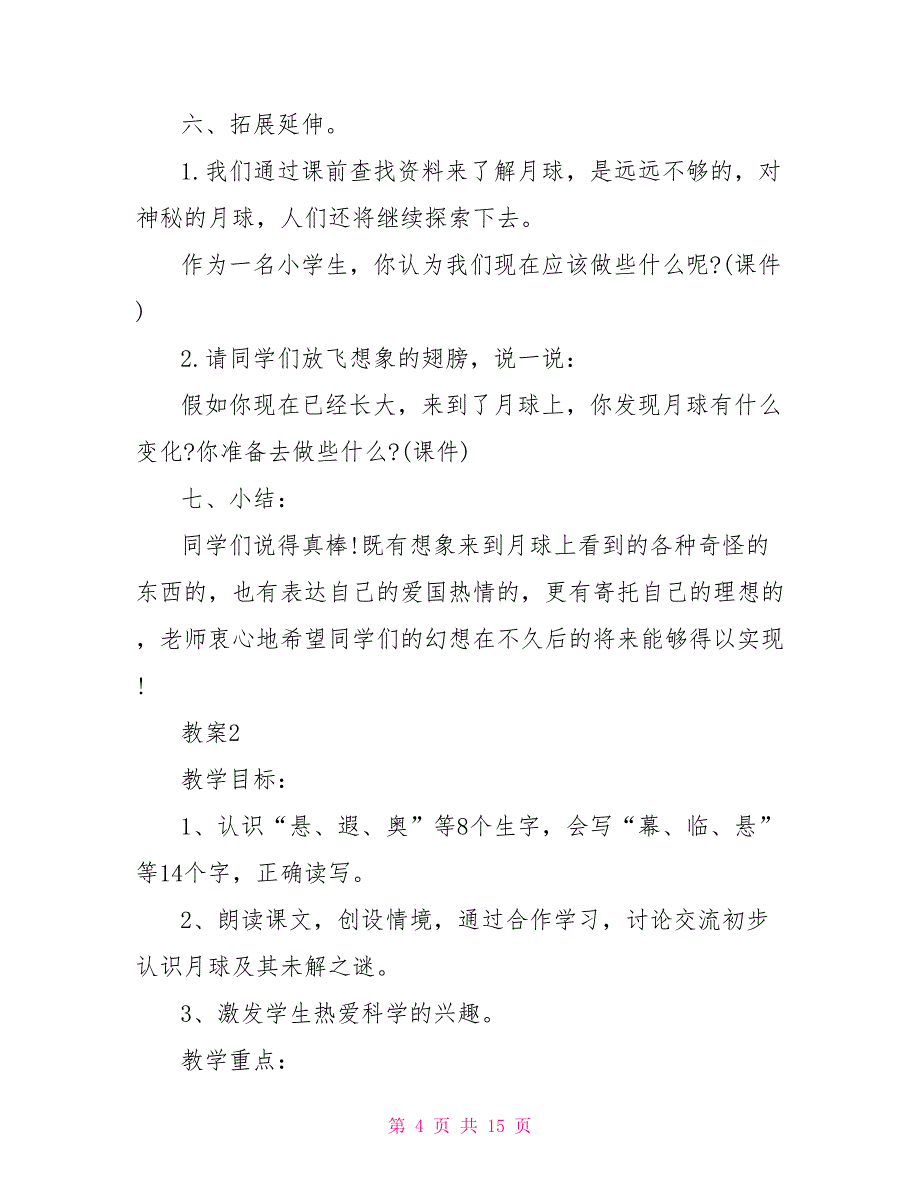 六、拓展延伸。
1.我们通过课前查找资料来了解月球，是远远不够的，对
神秘的月球，人们还将继续探索下去。
作为一名小学生，你认为我们现在应该做些什么呢?(课件
)
2.请同学们放飞想象的翅膀，说一说：
假如你现在已经长大，来到了月球上，你发现月球有什么
变化?你准备去做些什么?(课件)
七、小结：
同学们说得真棒!既有想象来到月球上看到的各种奇怪的
东西的，也有表达自己的爱国热情的，更有寄托自己的理想的
，老师衷心地希望同学们的幻想在不久后的将来能够得以实现
!
教案2
教学目标：
1、认识“悬、遐、奥”等8个生字，会写“幕、临、悬”
等14个字，正确读写。
2、朗读课文，创设情境，通过合作学习，讨论交流初步
认识月球及其未解之谜。
3、激发学生热爱科学的兴趣。
教学重点：
第 4 页 共 15 页